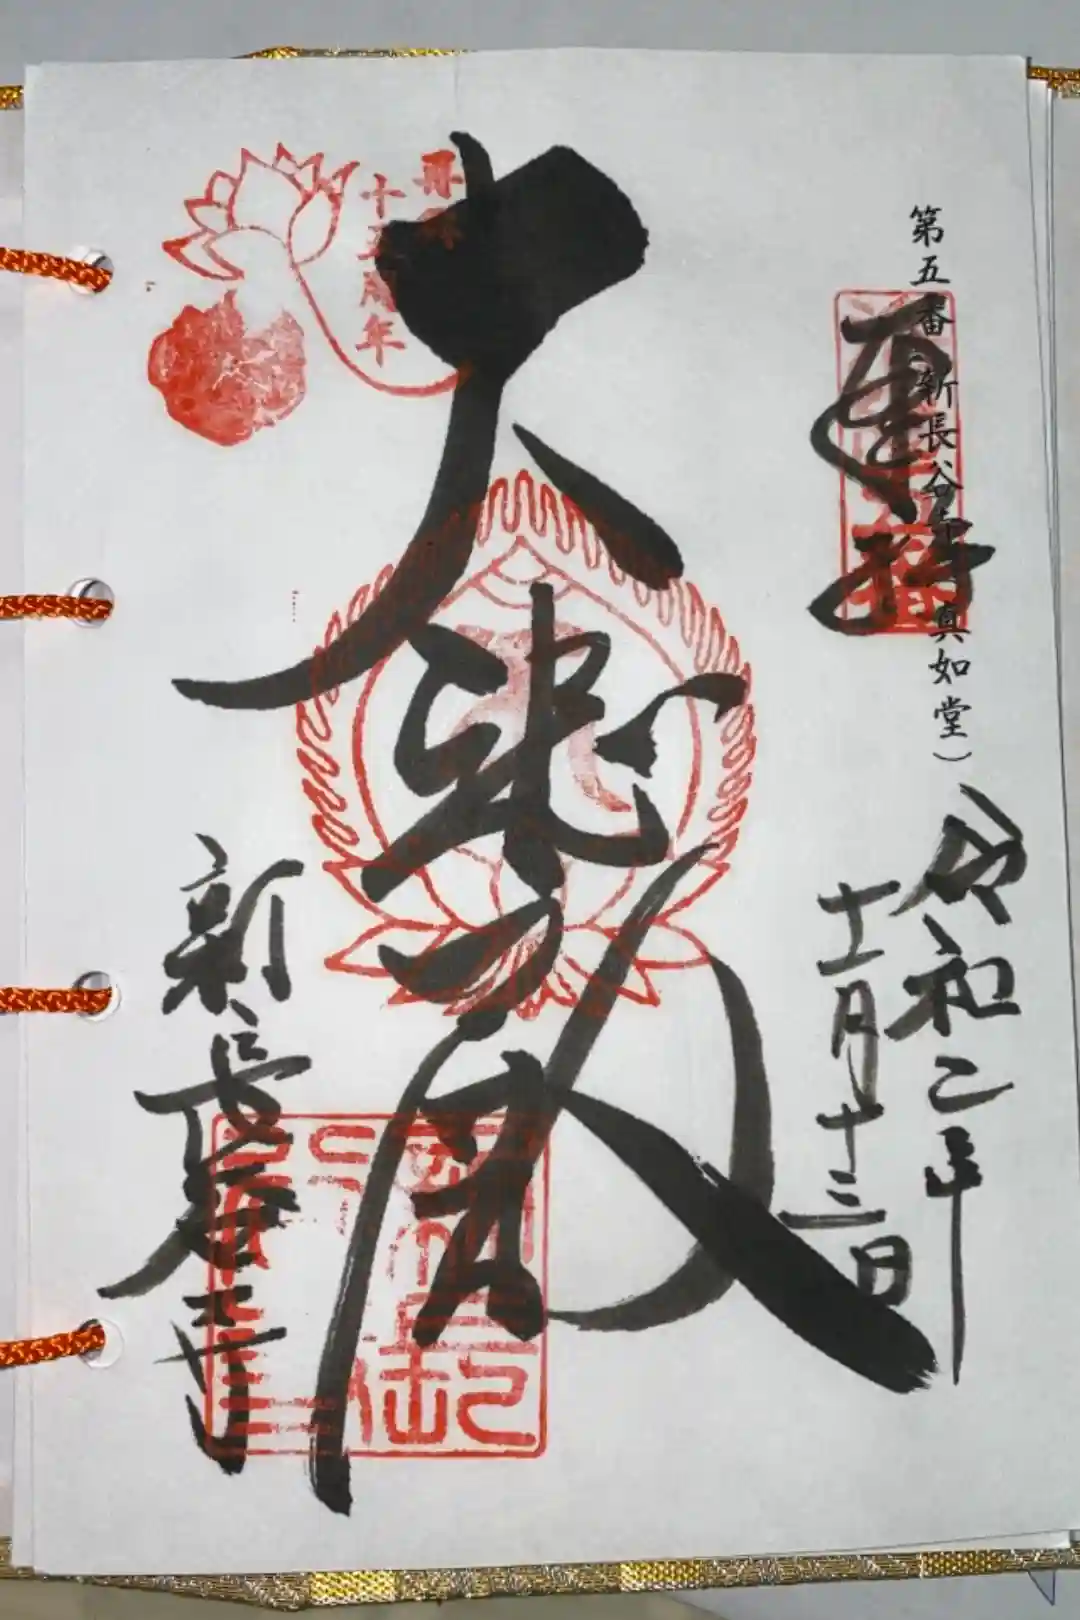 第五番 新長谷寺(真如堂)
奉拝
令和二年
十一月十三日
大悲殿
新長谷寺
再興
十五周年